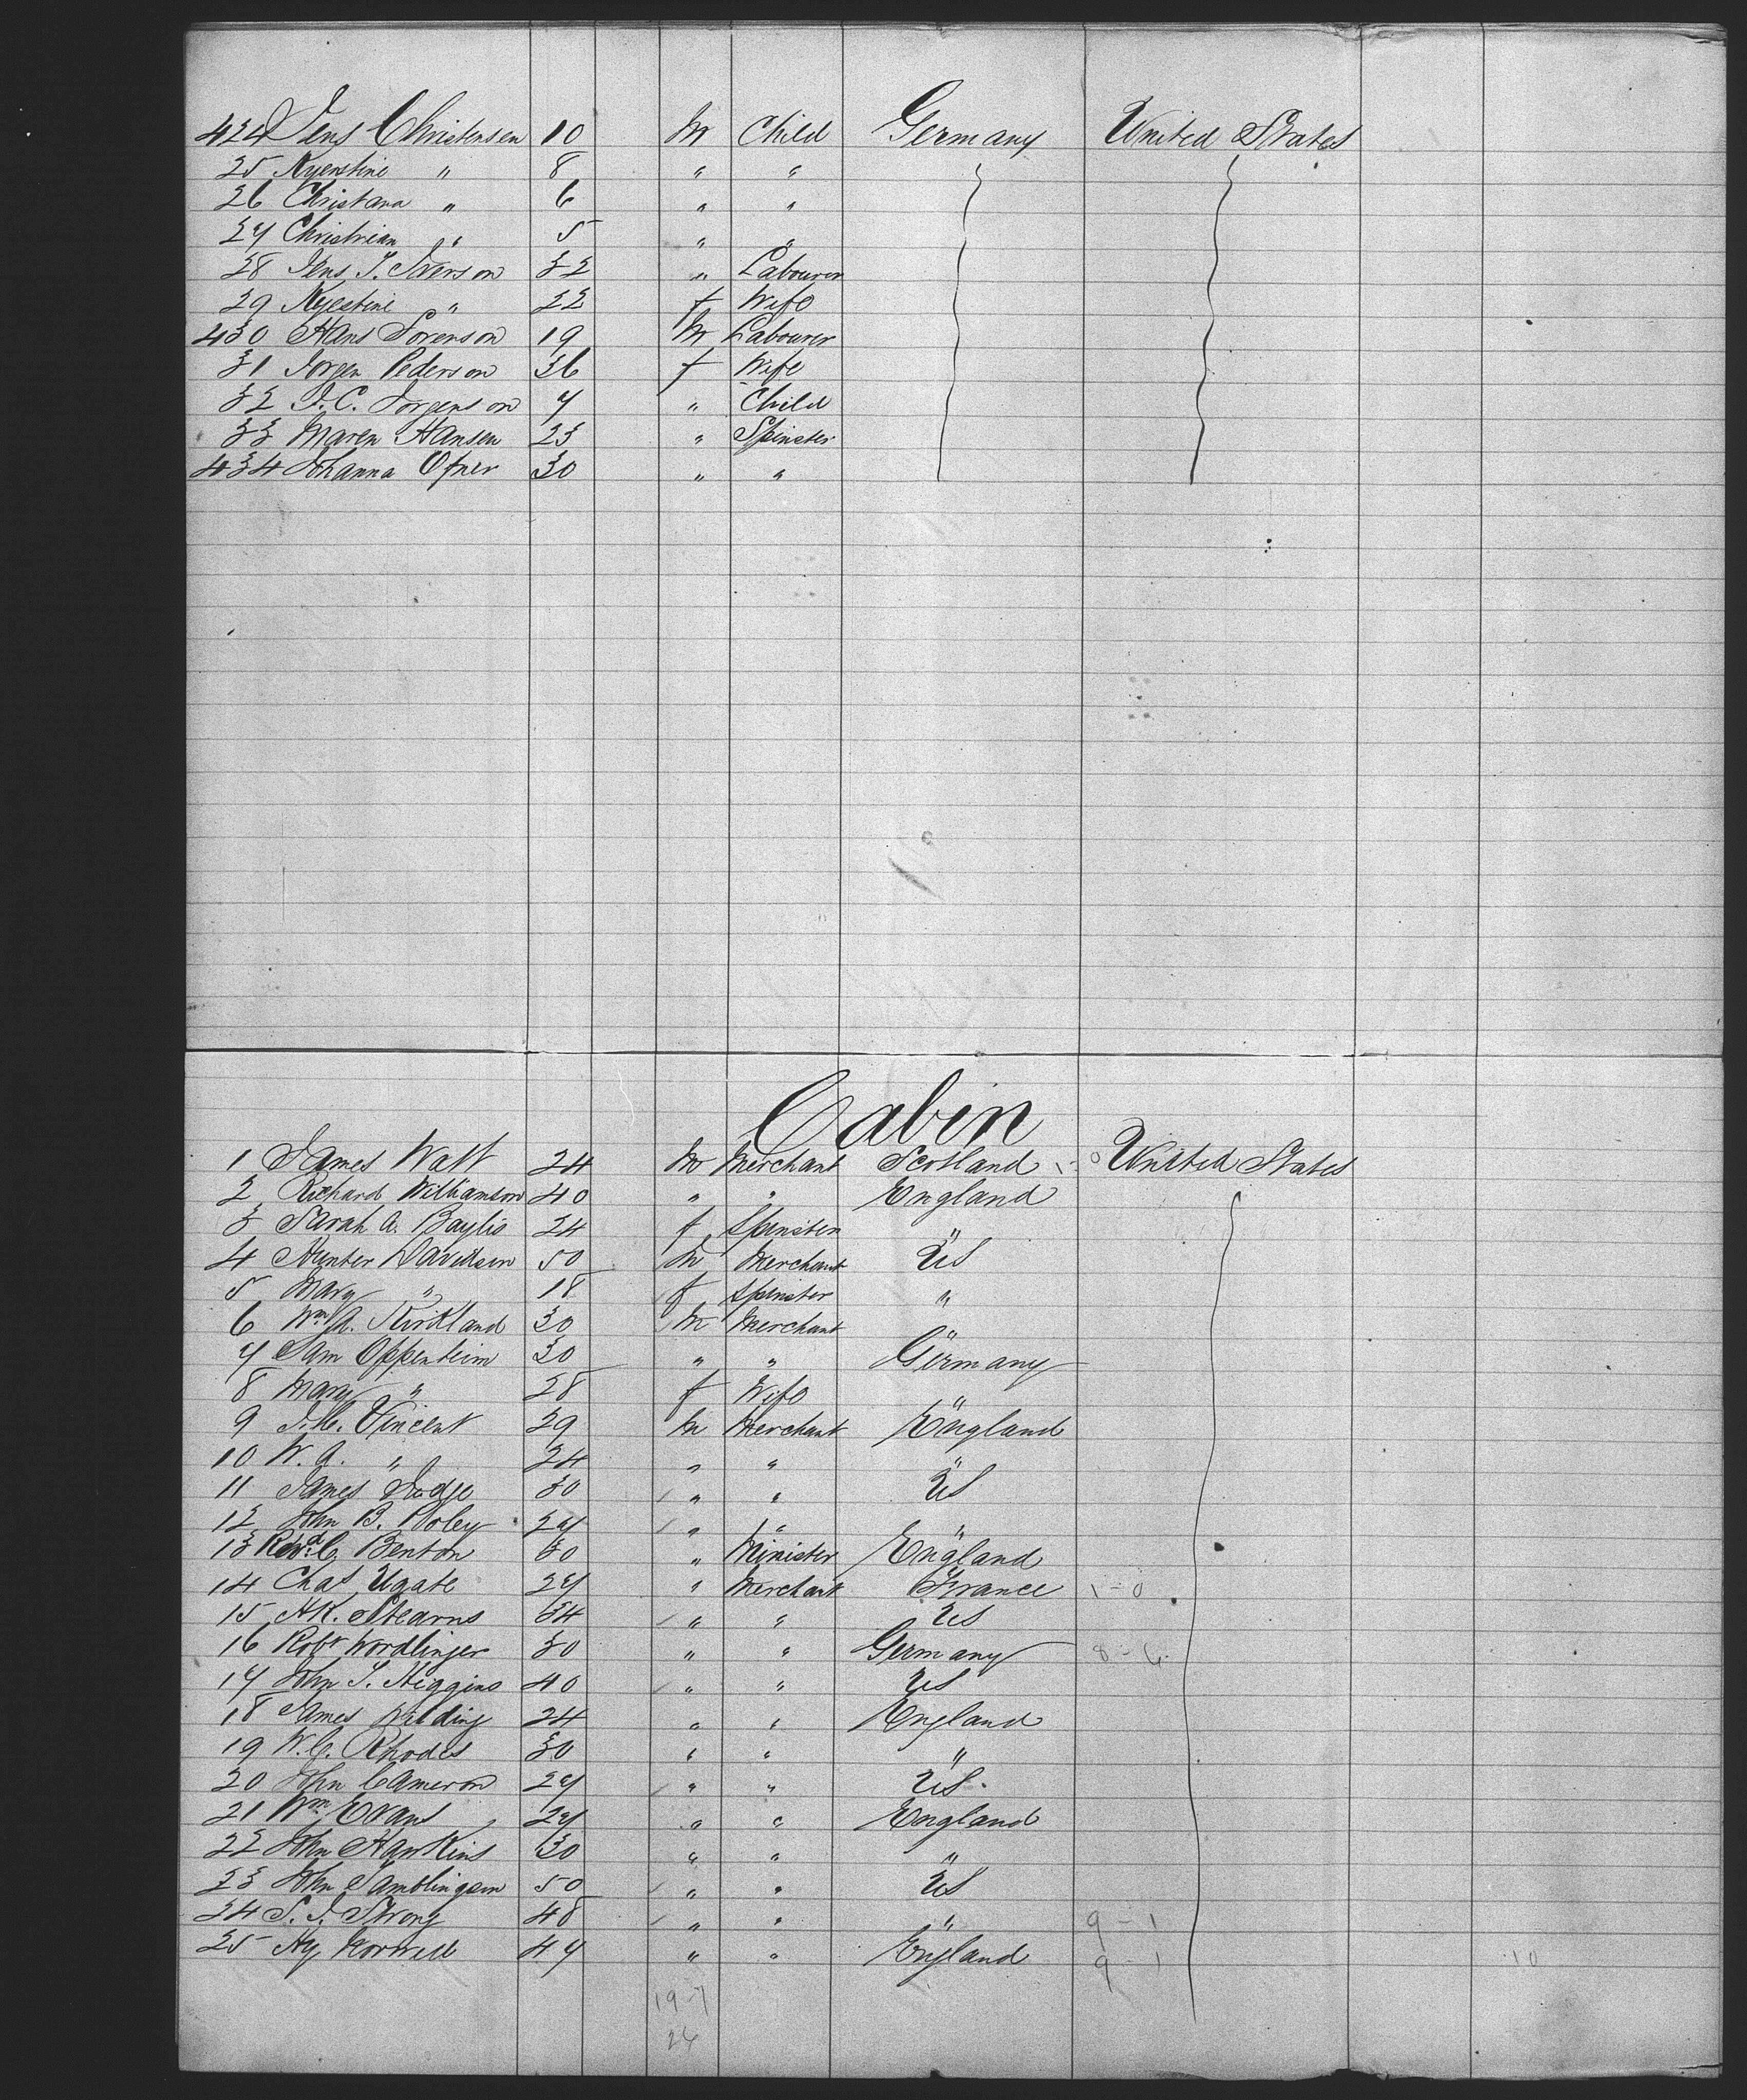 424 Jens Christensen 10 M Child Germany United States
25 Kyerstine " 8 " "
26 Christana " 6 " "
27 Christian " 5 " "
28 Jens J. Iverson 32 " Labourer
29 Kyestine " 22 f Wife
430 Hans Sorenson 19 M Labourer
31 Jorgen Pederson 36 f Wife
32 J. C. Jorgenson 7 " Child
33 Maren Hansen 23 " Spinster
434 Johanna 30 " "
Cabin
1 James Watt 24 M Merchant Scotland United States
2 Richard Williamson 40 " " England
3 Sarah A. Baylis 24 f Spinster "
4 Hunter Davidson 50 M Merchant US
5 Mary " 18 f Spinster "
6 Wm A. Kirkland 30 M Merchant "
7 Sam Oppenheim 30 " " Germany
8 Mary " 28 f Wife "
9 Vincent 29 M Merchant England
10 W. A. " 24 " " "
11 James Dodge 30 " " US
12 John B. 27 " " "
13 Revd C. Benton 30 " Minister England
14 Chas Ugate 27 " Merchant France 1-0
15 Stearns 34 " " US
16 Robt Wordlinger 30 " " Germany 8-6
17 John S. Higgins 40 " " US
18 James Wilding 24 " " England
19 W. C. Rhodes 30 " " "
20 John Cameron 27 " " US
21 Wm Evans 27 " " England
22 John Hawkins 30 " " "
23 John Tamblingson 50 " " US
24 S. J. Strong 48 " " " 9-1
25 Hy 47 " " England 9-1 10
19-7
26